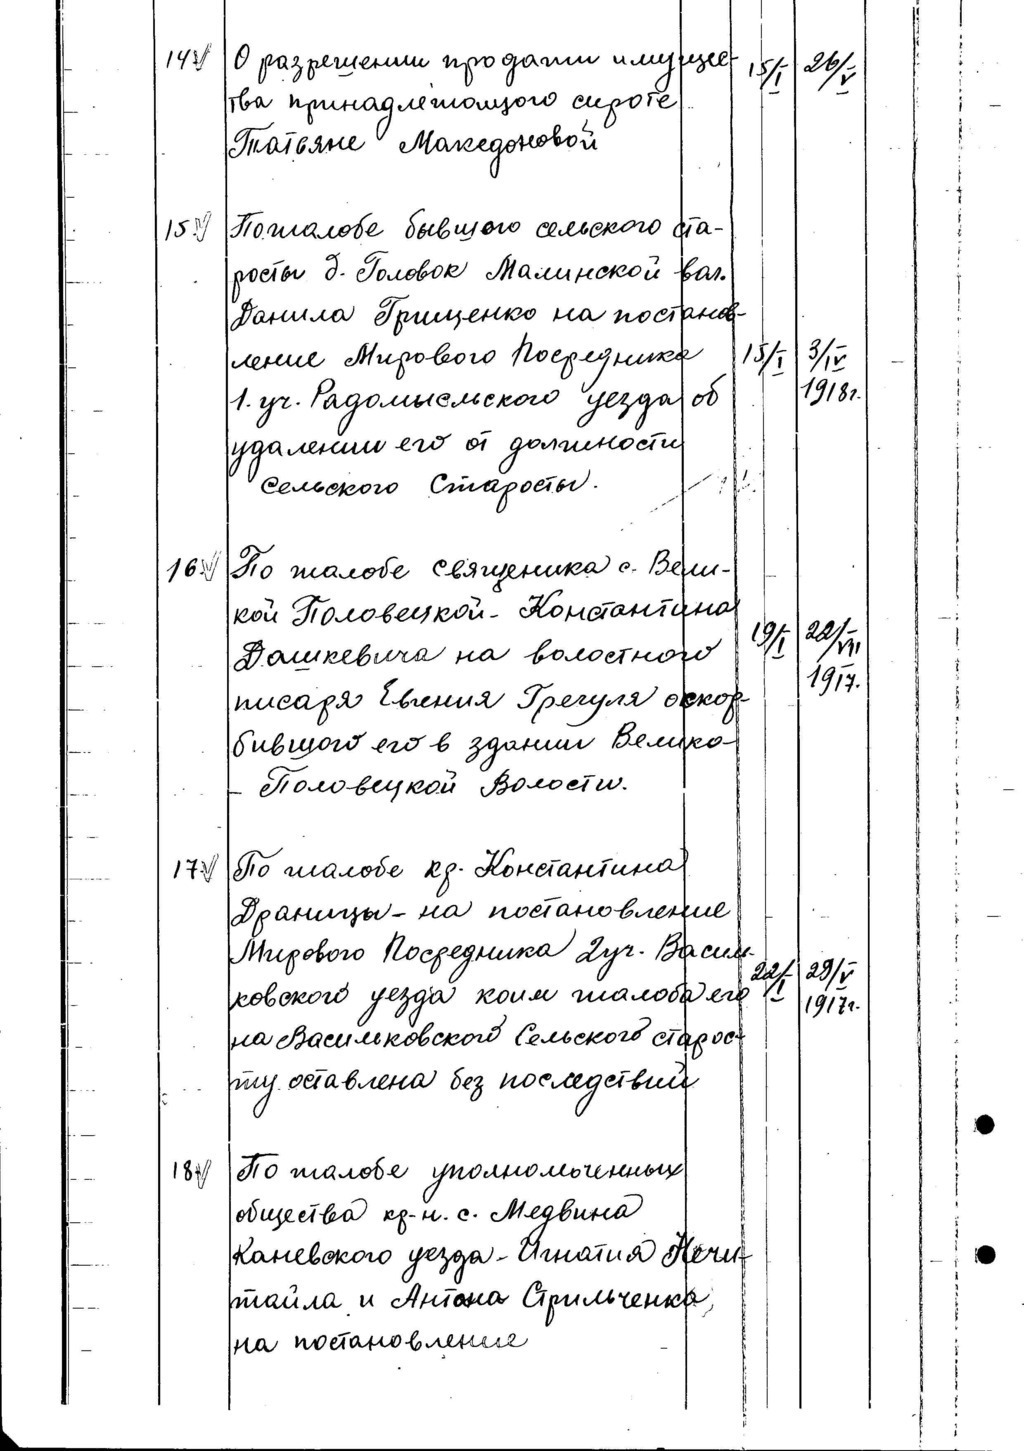 14 О разрешении продажи имущес- 15/I 26/V
тва принадлежащого сироте
Татьяне Македоновой
15 По жалобе бывшого сельского ста-
росты д. Головок Малинской вол.
Данила Грищенко на постанов-
ление Мирового Посредника 15/I 3/IV
1. уч. Радомысльского уезда об 1918г.
удалении его от должности
Сельского Старосты.
16 По жалобе священика с. Вели-
кой Половецкой - Константина
Дашкевича на волостного 19/I 22/VII
писаря Евгения Грегуля оскор- 1917.
бившого его в здании Велико-
- Половецкой Волости.
17 По жалобе кр. Константина
Драницы - на постановление
Мирового Посредника 2уч. Василь-
ковского уезда коим жалоба его 22/I 29/V
на Васильковского Сельского старос- 1917г.
ту оставлена без последствий
18 По жалобе уполномоченных
общества кр-н. с. Медвина
Каневского уезда - Игнатия Нечи-
тайла и Антона Стрильченка,
на постановление